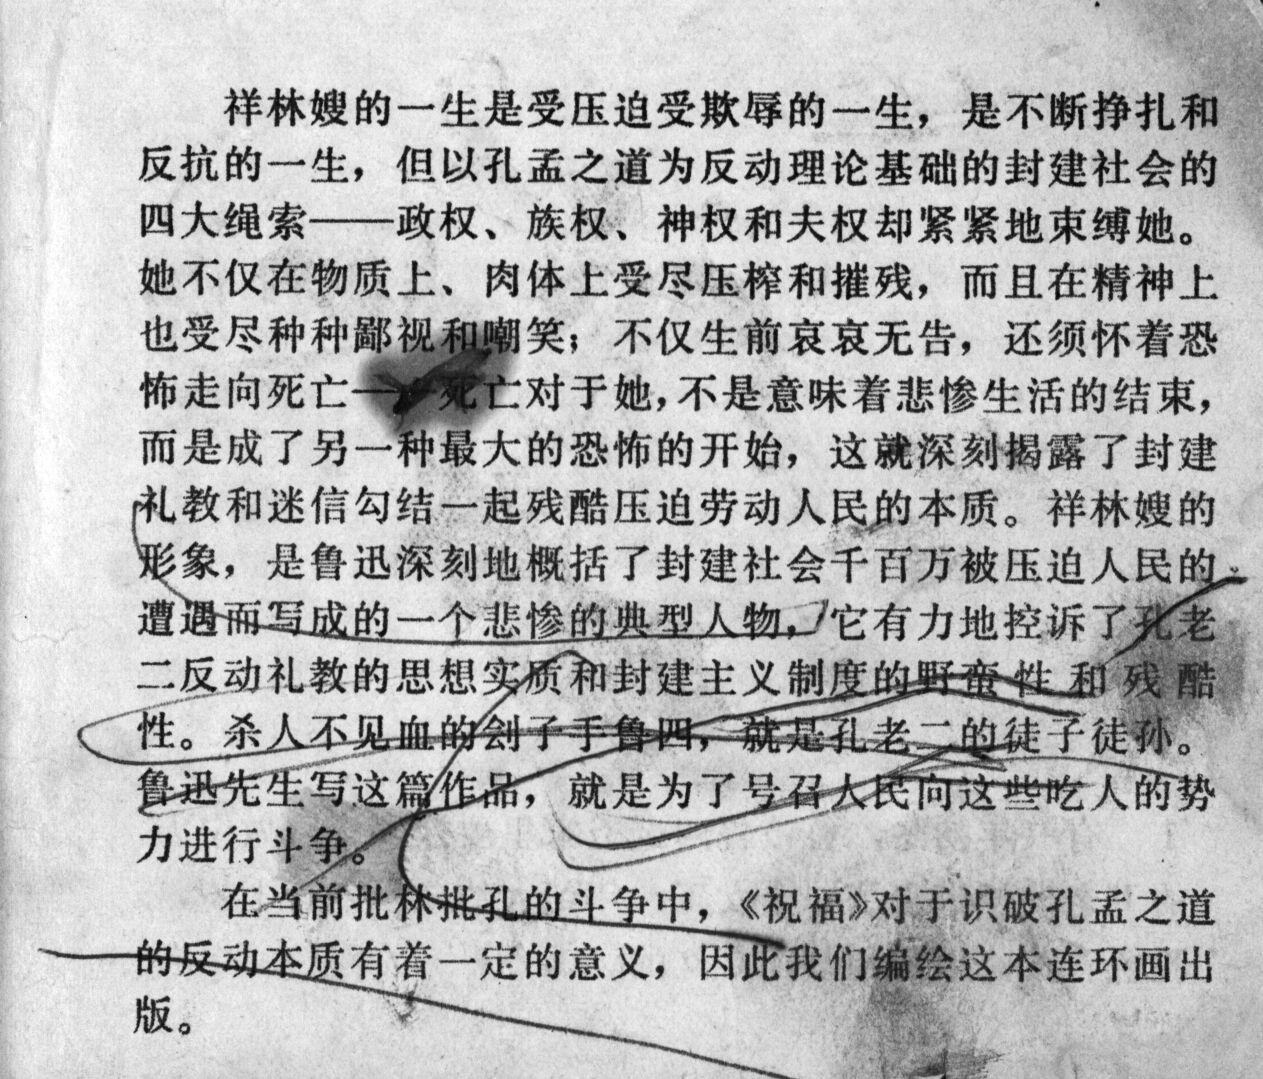 祥林嫂的一生是受压迫受欺辱的一生，是不断挣扎和
反抗的一生，但以孔孟之道为反动理论基础的封建社会的
四大绳索——政权、族权、神权和夫权却紧紧地束缚她。
她不仅在物质上、肉体上受尽压榨和摧残，而且在精神上
也受尽种种鄙视和嘲笑；不仅生前哀哀无告，还须怀着恐
怖走向死亡——死亡对于她，不是意味着悲惨生活的结束，
而是成了另一种最大的恐怖的开始，这就深刻揭露了封建
礼教和迷信勾结一起残酷压迫劳动人民的本质。祥林嫂的
形象，是鲁迅深刻地概括了封建社会千百万被压迫人民的
遭遇而写成的一个悲惨的典型人物，它有力地控诉了孔老
二反动礼教的思想实质和封建主义制度的野蛮性和残酷
性。杀人不见血的刽子手鲁四，就是孔老二的徒子徒孙。
鲁迅先生写这篇作品，就是为了号召人民向这些吃人的势
力进行斗争。
在当前批林批孔的斗争中，《祝福》对于识破孔孟之道
的反动本质有着一定的意义，因此我们编绘这本连环画出
版。